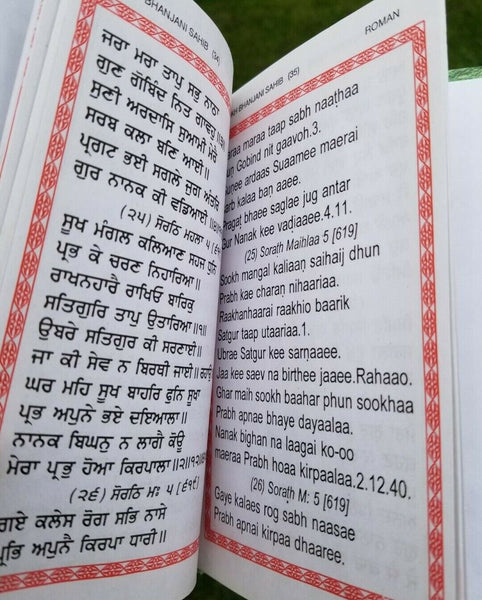 BHANJANI SAHIB (34)
ਜਰਾ ਮਰਾ ਤਾਪੁ ਸਭੁ ਨਾਠਾ
ਗੁਣ ਗੋਬਿੰਦ ਨਿਤ ਗਾਵਹੁ
ਸੁਣੀ ਅਰਦਾਸਿ ਸੁਆਮੀ ਮੇਰੈ
ਸਰਬ ਕਲਾ ਬਣਿ ਆਈ॥
ਪ੍ਰਗਟ ਭਈ ਸਗਲੇ ਜੁਗ ਅੰਤਰਿ
ਗੁਰ ਨਾਨਕ ਕੀ ਵਡਿਆਈ
(੨੫) ਸੋਰਠਿ ਮਹਲਾ ੫
ਸੂਖ ਮੰਗਲ ਕਲਿਆਣ ਸਹਜ ਧੁਨਿ
ਪ੍ਰਭ ਕੇ ਚਰਣ ਨਿਹਾਰਿਆ॥
ਰਾਖਨਹਾਰੈ ਰਾਖਿਓ ਬਾਰਿਕੁ
ਸਤਿਗੁਰਿ ਤਾਪੁ ਉਤਾਰਿਆ॥੧॥
ਉਬਰੇ ਸਤਿਗੁਰ ਕੀ ਸਰਣਾਈ॥
ਜਾ ਕੀ ਸੇਵ ਨ ਬਿਰਥੀ ਜਾਈ॥
ਘਰ ਮਹਿ ਸੂਖ ਬਾਹਰਿ ਫੁਨਿ ਸੂਖਾ
ਪ੍ਰਭ ਅਪੁਨੇ ਭਏ ਦਇਆਲਾ॥
ਨਾਨਕ ਬਿਘਨੁ ਨ ਲਾਗੈ ਕੋਊ
ਮੇਰਾ ਪ੍ਰਭੁ ਹੋਆ ਕਿਰਪਾਲਾ॥੨॥੧੨॥੪੦॥
(੨੬) ਸੋਰਠਿ ਮਃ ੫ [੬੧੯]
ਗਏ ਕਲੇਸ ਰੋਗ ਸਭਿ ਨਾਸੇ
ਪ੍ਰਭਿ ਅਪੁਨੈ ਕਿਰਪਾ ਧਾਰੀ॥
BHANJANI SAHIB (35) ROMAN
maraa taap sabh naaṭhaa
Gobind nit gaavoh.3.
ardaas Suaamee maerai
kalaa baṇ aaee.
Pragaṭ bhaee saglae jug antar
Gur Nanak kee vaḍiaaee.4.11.
(25) Soraṭh Maihlaa 5 [619]
Sookh mangal kaliaaṇ saihaij dhun
Prabh kae charaṇ nihaariaa.
Raakhanhaarai raakhio baarik
Satgur taap utaariaa.1.
Ubrae Satgur kee sarṇaaee.
Jaa kee saev na birthee jaaee.Rahaao.
Ghar maih sookh baahar phun sookhaa
Prabh apnae bhaye dayaalaa.
Nanak bighan na laagai ko-oo
maeraa Prabh hoaa kirpaalaa.2.12.40.
(26) Soraṭh M: 5 [619]
Gaye kalaes rog sabh naasae
Prabh apnai kirpaa dhaaree.